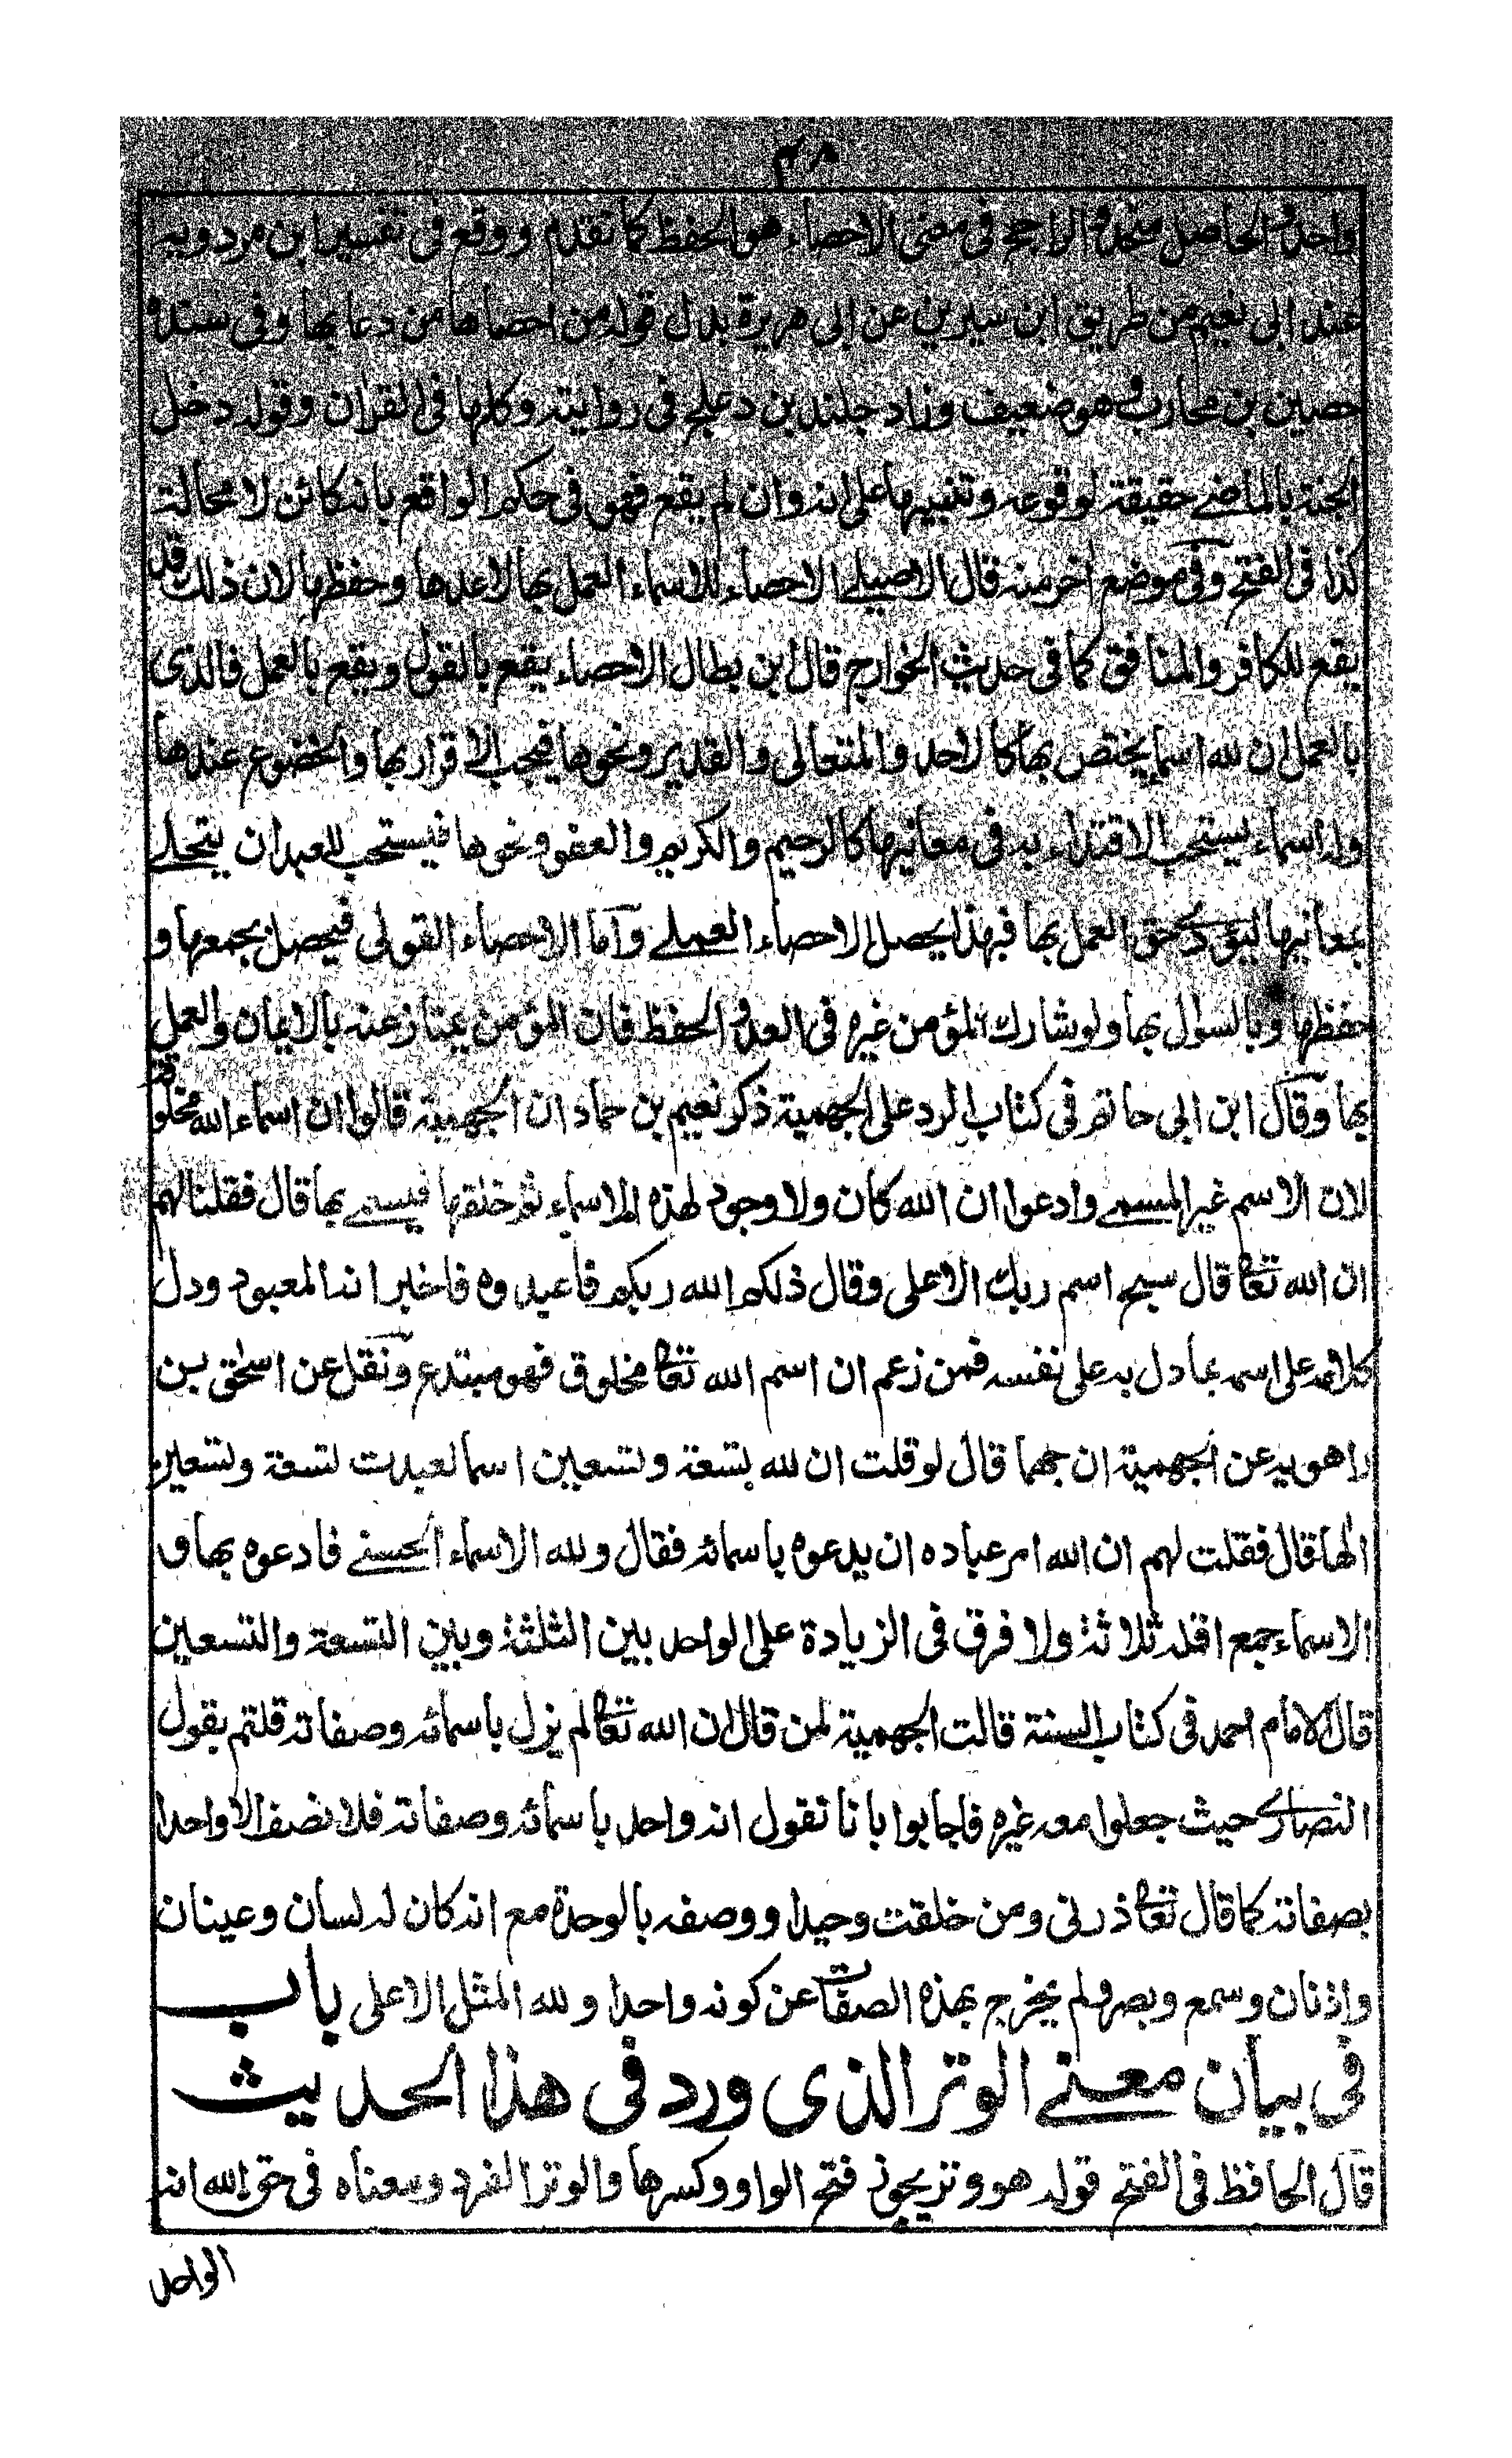 ٣٨
واحد والحاصل متحد والراجح فى معنى الاحصاء هو الحفظ كما تقدم ووقع فى تفسير ابن مردويه
عند ابى نعيم من طريق ابن سيرين عن ابى هريرة بدل قوله من احصاها من دعا بها وفى سنده
حصين بن مخارق وهو ضعيف وزاد خليد بن دعلج فى روايته وكلها فى القران وقوله دخل
الجنة بالماضے حقيقة لوقوعه وتنبيها على انه وان لم يقع فهو فى حكم الواقع بانه كائن لا محالة
كذا فى الفتح وفى موضع اخر منه قال الاصيلے الاحصاء للاسماء العمل بها لا عدها وحفظها لان ذلك قد
يقع للكافر والمنافق كما فى حديث الخوارج قال ابن بطال الاحصاء يقع بالقول ويقع بالعمل فالذى
بالعمل ان لله اسما يختص بها كالاحد والمتعالى والقدير ونحوها فيجب الاقرار بها والخضوع عندها
وله اسماء يستحب الاقتداء به فى معانيها كالرحيم والكريم والعفو ونحوها فيستحب للعبد ان يتحلے
بمعانيها ليؤدى حق العمل بها فبهذا يحصل الاحصاء العملے وآما الاحصاء القولى فيحصل بجمعها و
حفظها وبالسوال بها ولو شارك المؤمن غيره فى العد والحفظ فان المؤمن يمتاز عنه بالايمان والعمل
بها وقال ابن ابى حاتم فى كتاب الرد على الجهمية ذكر نعيم بن حماد ان الجهمية قالوا ان اسماء الله مخلوقة
لان الاسم غير المسمے وادعوا ان الله كان ولا وجود لهذه الاسماء ثم خلقها فيسمے بها قال فقلنا لهم
ان الله تعا قال سبح اسم ربك الاعلى وقال ذلكم الله ربكم فاعبدوه فاخبر انه المعبود ودل
كلامه على اسمه بما دل به على نفسه فمن زعم ان اسم الله تعا مخلوق فهو مبتدع ونقل عن اسحٰق بن
راهويه عن الجهمية ان جهما قال لو قلت ان لله بتسعة وتسعين اسما لعبدت تسعة وتسعين
الٰها قال فقلت لهم ان الله امر عباده ان يدعوه باسمائه فقال ولله الاسماء الحسنے فادعوه بها و
الاسماء جمع اقله ثلاثة ولا فرق فى الزيادة على الواحد بين الثلثة وبين التسعة والتسعين
قال الامام احمد فى كتاب السنة قالت الجهمية لمن قال ان الله تعا لم يزل باسمائه وصفاته قلتم بقول
النصارى حيث جعلوا معه غيره فاجابوا بانا نقول انه واحد باسمائه وصفاته فلا نصف الا واحدا
بصفاته كما قال تعا ذرنى ومن خلقت وحيدا ووصفه بالوحدة مع انه كان له لسان وعينان
واذنان وسمع وبصر ولم يخرج بهذه الصفات عن كونه واحدا ولله المثل الاعلى باب
فى بيان معنے الوتر الذى ورد فى هذا الحديث
قال الحافظ فى الفتح قوله هو وتر يجوز فتح الواو وكسرها والوتر الفرد ومعناه فى حق الله انه
الواحد